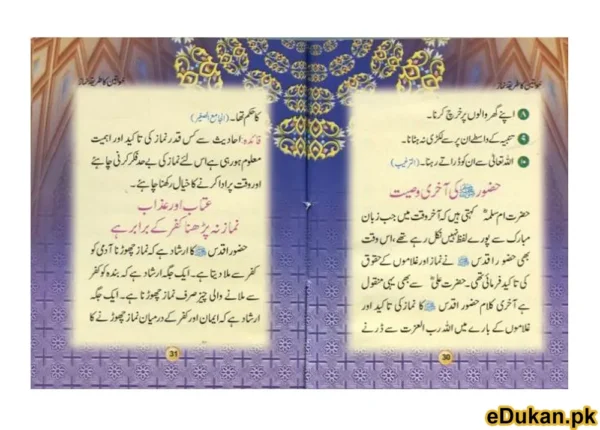 خواتین کا طریقۂ نماز
۸ اپنے گھر والوں پر خرچ کرنا۔
۹ تنبیہ کے واسطے ان پر سے لکڑی نہ ہٹانا۔
۱۰ اللہ تعالیٰ سے ان کو ڈراتے رہنا۔ (الترغیب)
حضور ﷺ کی آخری وصیت
حضرت ام سلمہؓ کہتی ہیں کہ آخر وقت میں جب زبان
مبارک سے پورے لفظ نہیں نکل رہے تھے، اس وقت
بھی حضور اقدس ﷺ نے نماز اور غلاموں کے حقوق
کی تاکید فرمائی تھی۔ حضرت علیؓ سے بھی یہی منقول
ہے آخری کلام حضور اقدس ﷺ کا نماز کی تاکید اور
غلاموں کے بارے میں اللہ رب العزت سے ڈرنے
30
خواتین کا طریقۂ نماز
کا حکم تھا۔ (الجامع الصغیر)
فائدہ: احادیث سے کس قدر نماز کی تاکید اور اہمیت
معلوم ہو رہی ہے اس لئے نماز کی بے حد فکر کرنی چاہئے
اور وقت پر ادا کرنے کا خیال رکھنا چاہئے۔
عتاب اور عذاب
نماز نہ پڑھنا کفر کے برابر ہے
حضور اقدس ﷺ کا ارشاد ہے کہ نماز چھوڑنا آدمی کو
کفر سے ملا دیتا ہے۔ ایک جگہ ارشاد ہے کہ بندہ کو کفر
سے ملانے والی چیز صرف نماز چھوڑنا ہے۔ ایک جگہ
ارشاد ہے کہ ایمان اور کفر کے درمیان نماز چھوڑنے کا
31
eDukan.pk